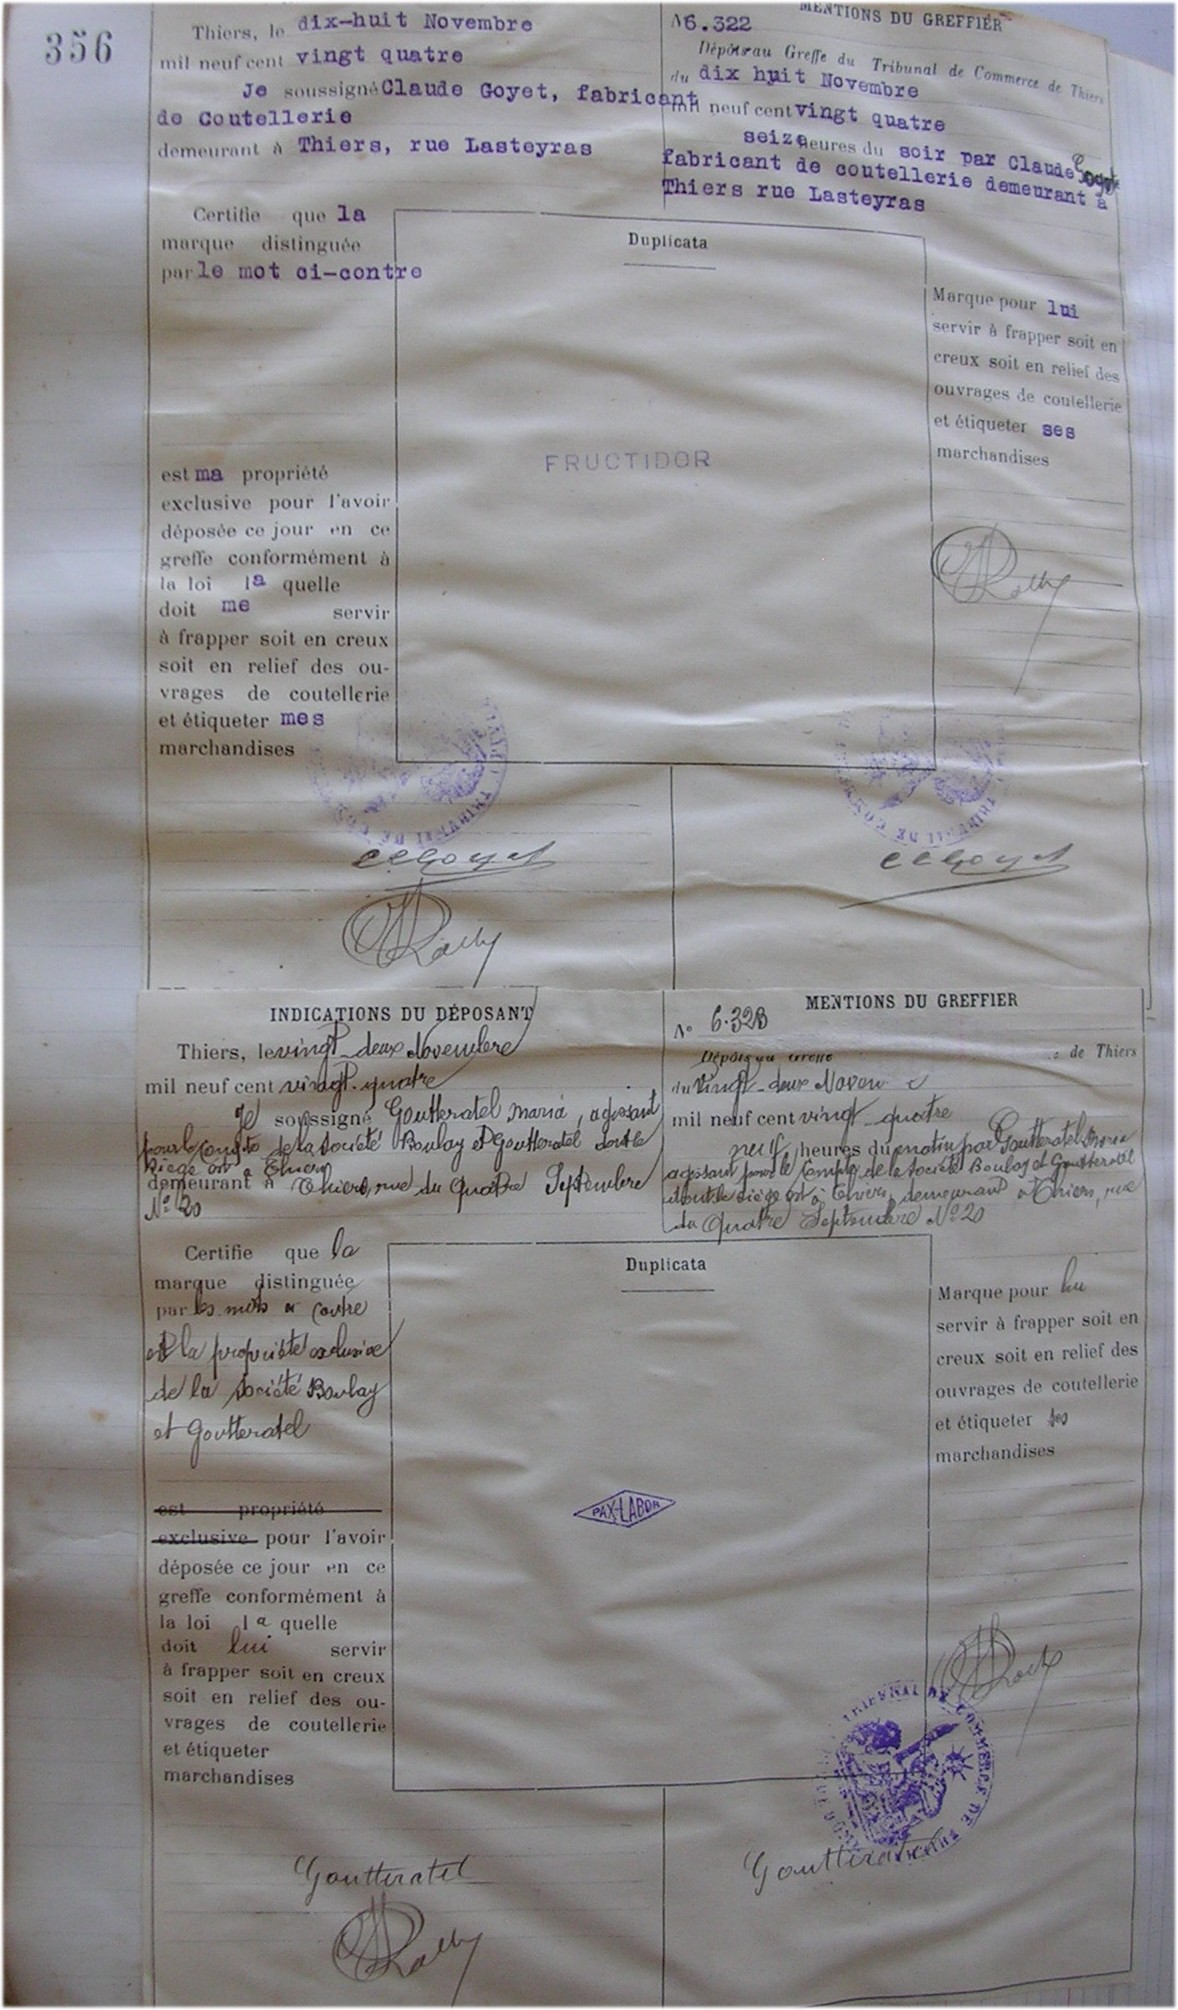 356
Thiers, le dix-huit Novembre
mil neuf cent vingt quatre
Je soussigné Claude Goyet, fabricant
de Coutellerie
demeurant à Thiers, rue Lasteyras
MENTIONS DU GREFFIER
N° 6.322
Dépôt au Greffe du Tribunal de Commerce de Thiers
du dix huit Novembre
mil neuf cent vingt quatre
seize heures du soir par Claude Goyet
fabricant de coutellerie demeurant à
Thiers rue Lasteyras
Certifie que la
marque distinguée
par le mot ci-contre
est ma propriété
exclusive pour l'avoir
déposée ce jour en ce
greffe conformément à
la loi la quelle
doit me servir
à frapper soit en creux
soit en relief des ou-
vrages de coutellerie
et étiqueter mes
marchandises
Duplicata
FRUCTIDOR
Marque pour lui
servir à frapper soit en
creux soit en relief des
ouvrages de coutellerie
et étiqueter ses
marchandises
ClGoyet
ClGoyet
INDICATIONS DU DÉPOSANT
Thiers, le vingt-deux Novembre
mil neuf cent vingt-quatre
Je soussigné Goutteratel Maria, agissant
pour le compte de la société Boulay et Goutteratel dont le
siège est à Thiers
demeurant à Thiers, rue du Quatre Septembre
N° 20
MENTIONS DU GREFFIER
N° 6.323
Dépôt au Greffe de Thiers
du vingt-deux Novem e
mil neuf cent vingt-quatre
neuf heures du matin par Goutteratel Maria
agissant pour le compte de la société Boulay et Goutteratel
dont le siège est à Thiers, demeurant à Thiers, rue
du Quatre Septembre N° 20
Certifie que la
marque distinguée
par les mots ci contre
est la propriété exclusive
de la société Boulay
et Goutteratel
est propriété
exclusive pour l'avoir
déposée ce jour en ce
greffe conformément à
la loi la quelle
doit lui servir
à frapper soit en creux
soit en relief des ou-
vrages de coutellerie
et étiqueter
marchandises
Duplicata
PAX-LABOR
Marque pour lui
servir à frapper soit en
creux soit en relief des
ouvrages de coutellerie
et étiqueter ses
marchandises
TRIBUNAL DE COMMERCE DE
Goutteratel
Goutteratel